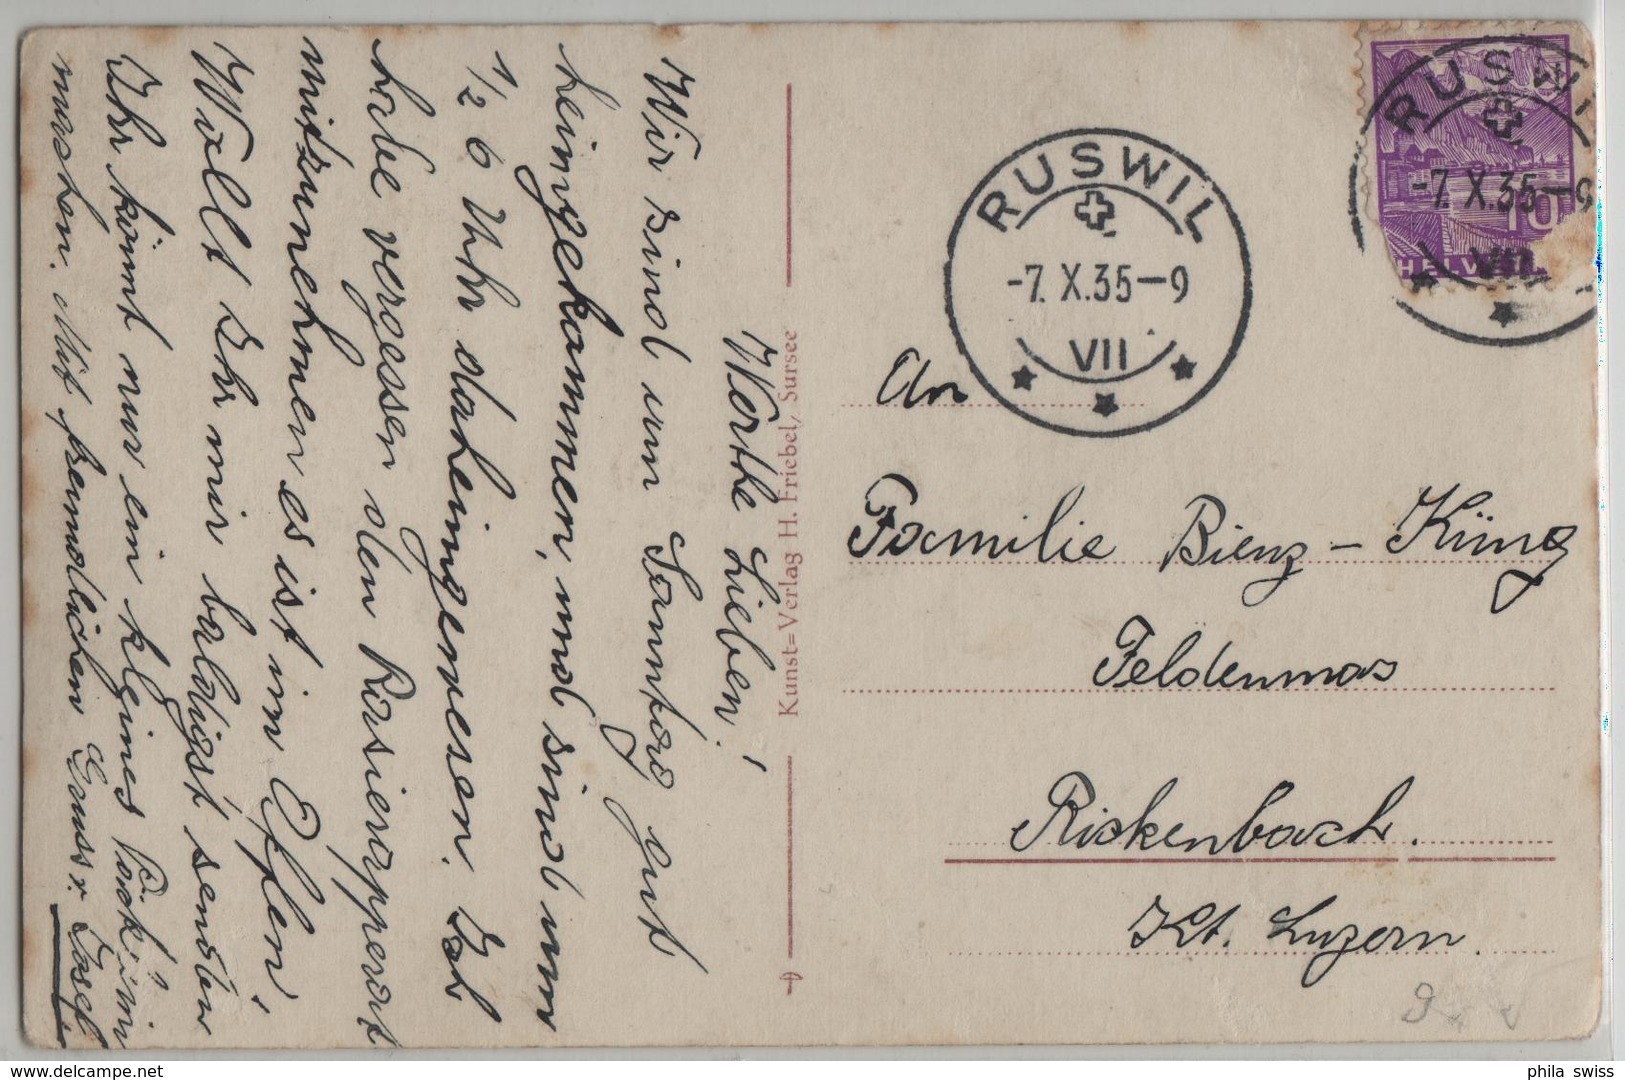 Werthe Lieben!
Wir sind am Sonntag gut
heimgekommen, und sind um
1/2 6 Uhr daheimgewesen. Ich
habe vergessen den Rasierapperat
mitzunehmen es ist im Öfleni
Wollt Ihr mir baldigst senden
Ihr könnt nur ein kleines Päckli
machen. Mit freundlichen Gruss v. Josef
Kunst=Verlag H. Friebel, Sursee
RUSWIL
-7. X. 35-9
VII
RUSWIL
-7. X. 35-9
VII
10
HELV
An
Familie Bienz-Küng
Feldenmas
Rickenbach.
Kt. Luzern.
phila swiss
delcampe.net